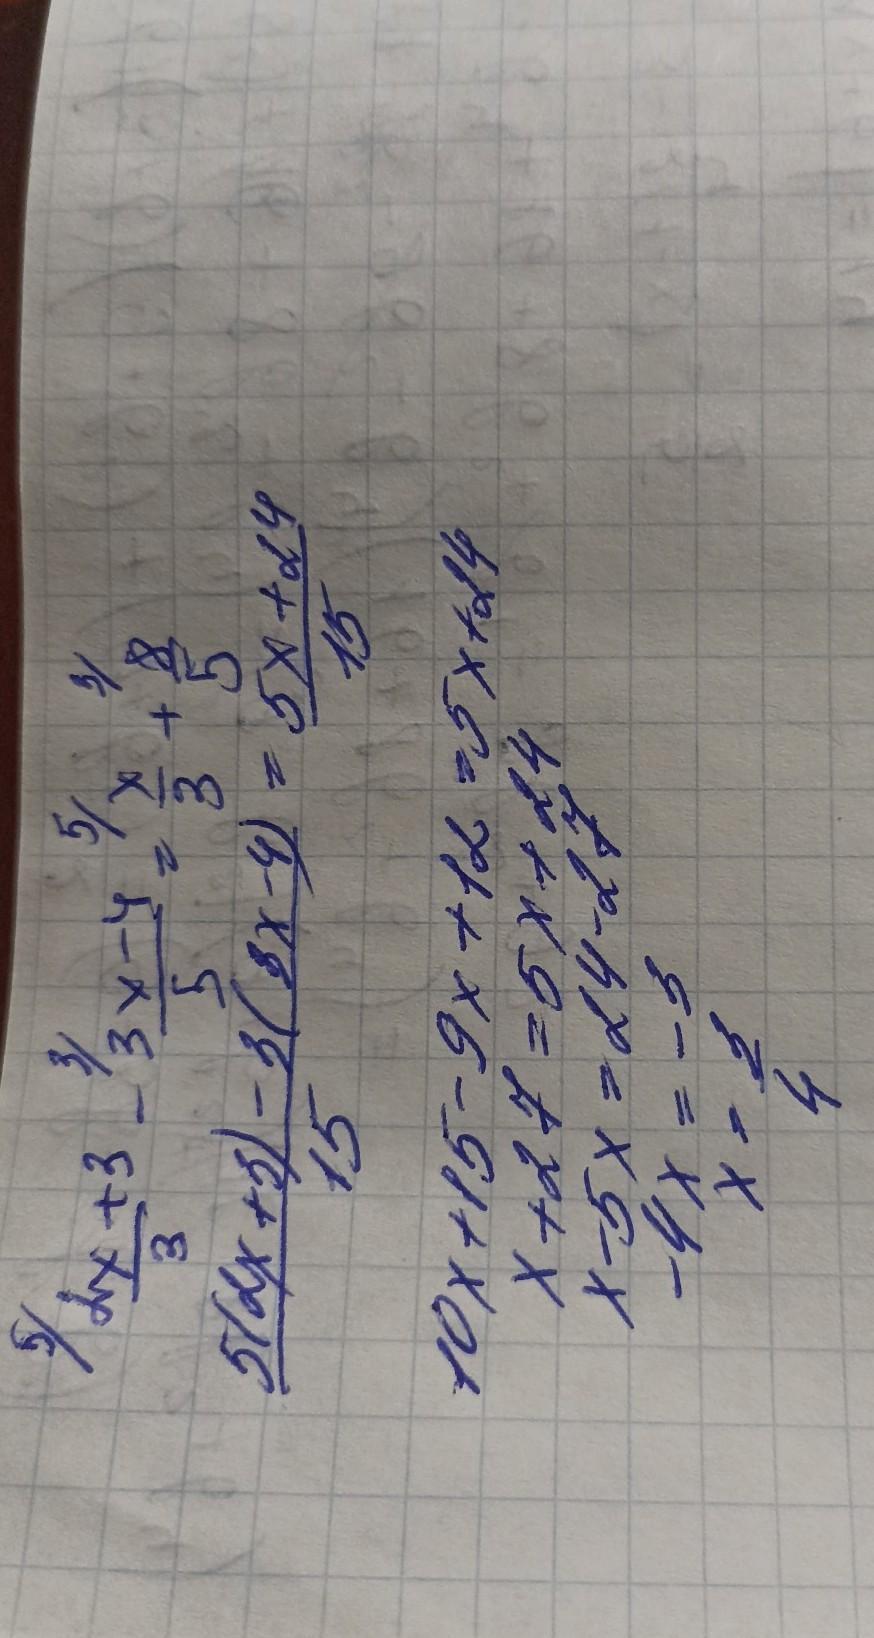 5/ 2x+3/3 - 3/ 3x-4/5 = 5/ x/3 + 3/ 8/5
5(2x+3)-3(3x-4)/15 = 5x+24/15
10x+15-9x+12=5x+24
x+27=5x+24
x-5x=24-27
-4x=-3
x = 3/4